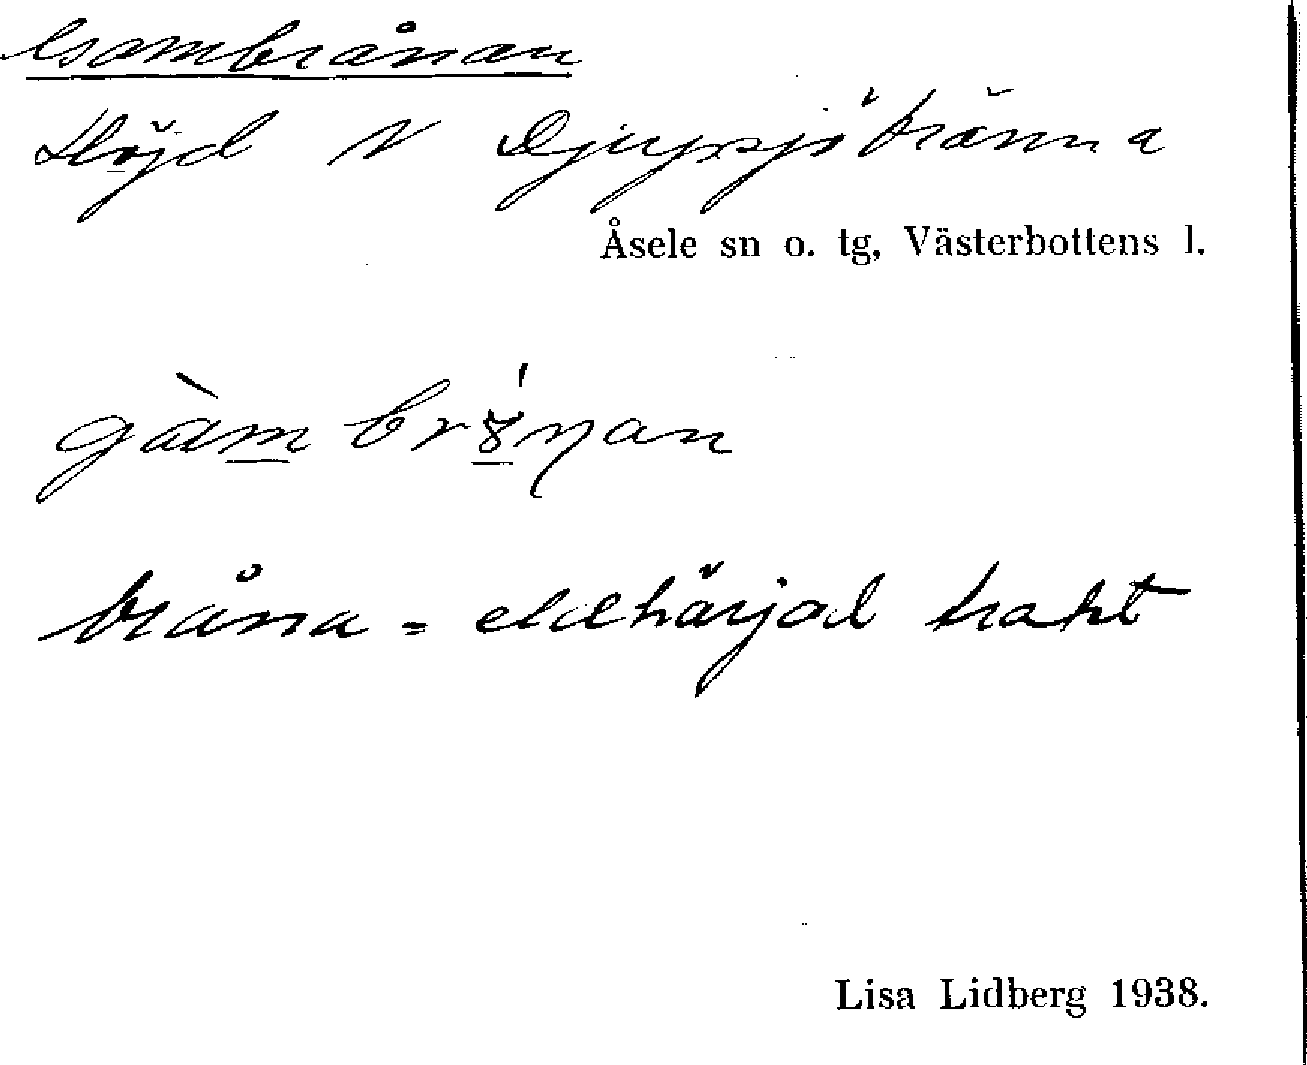 Gambrånan
Höjd N Djupsjöbränna
Åsele sn o. tg, Västerbottens l.
gàm bránan
bråna = eldhärjad trakt
Lisa Lidberg 1938.